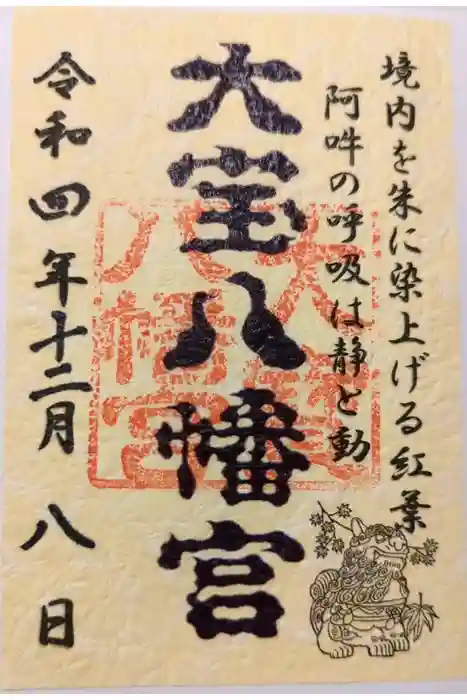 境内を朱に染上げる紅葉
阿吽の呼吸は静と動
大宝八幡宮
大寶八幡宮
令和四年十二月八日